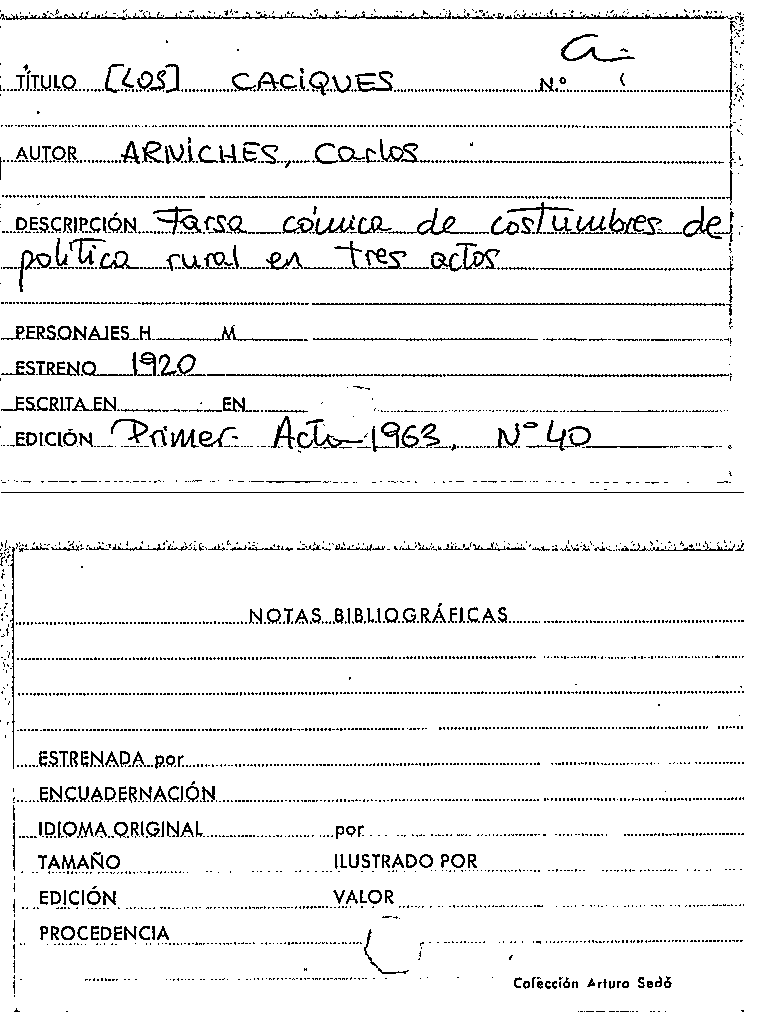 a-
TÍTULO [LOS] CACIQUES N.º
AUTOR ARNICHES, Carlos
DESCRIPCIÓN Farsa cómica de costumbres de
política rural en tres actos
PERSONAJES H M
ESTRENO 1920
ESCRITA EN EN
EDICIÓN Primer Acto 1963, Nº 40
NOTAS BIBLIOGRÁFICAS
ESTRENADA por
ENCUADERNACIÓN
IDIOMA ORIGINAL por
TAMAÑO ILUSTRADO POR
EDICIÓN VALOR
PROCEDENCIA
Colección Arturo Sedó